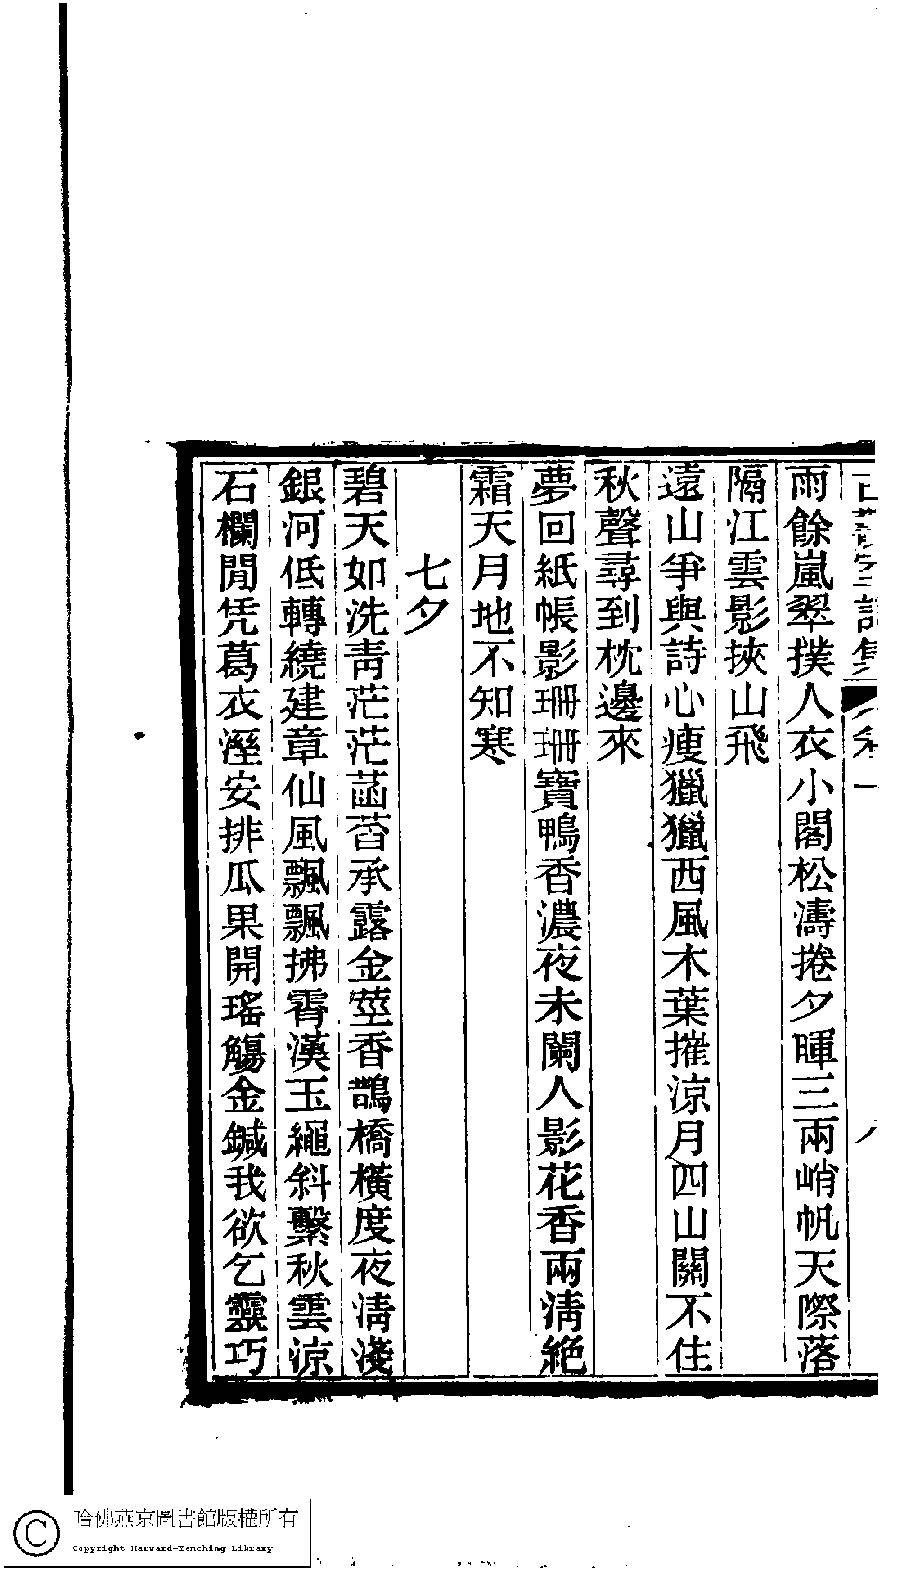 雨餘嵐翠撲人衣小閣松濤捲夕暉三兩峭帆天際落
隔江雲影挾山飛
遠山爭與詩心瘦獵獵西風木葉摧涼月四山關不住
秋聲尋到枕邊來
夢回紙帳影珊珊寶鴨香濃夜未闌人影花香兩淸絶
霜天月地不知寒
七夕
碧天如洗靑茫茫菡萏承露金莖香鵲橋橫度夜淸淺
銀河低轉繞建章仙風飄飄拂霄漢玉繩斜繫秋雲涼
石欄閒凭葛衣溼安排瓜果開瑤觴金鍼我欲乞靈巧
哈佛燕京圖書館版權所有
Copyright Harvard-Yenching Library